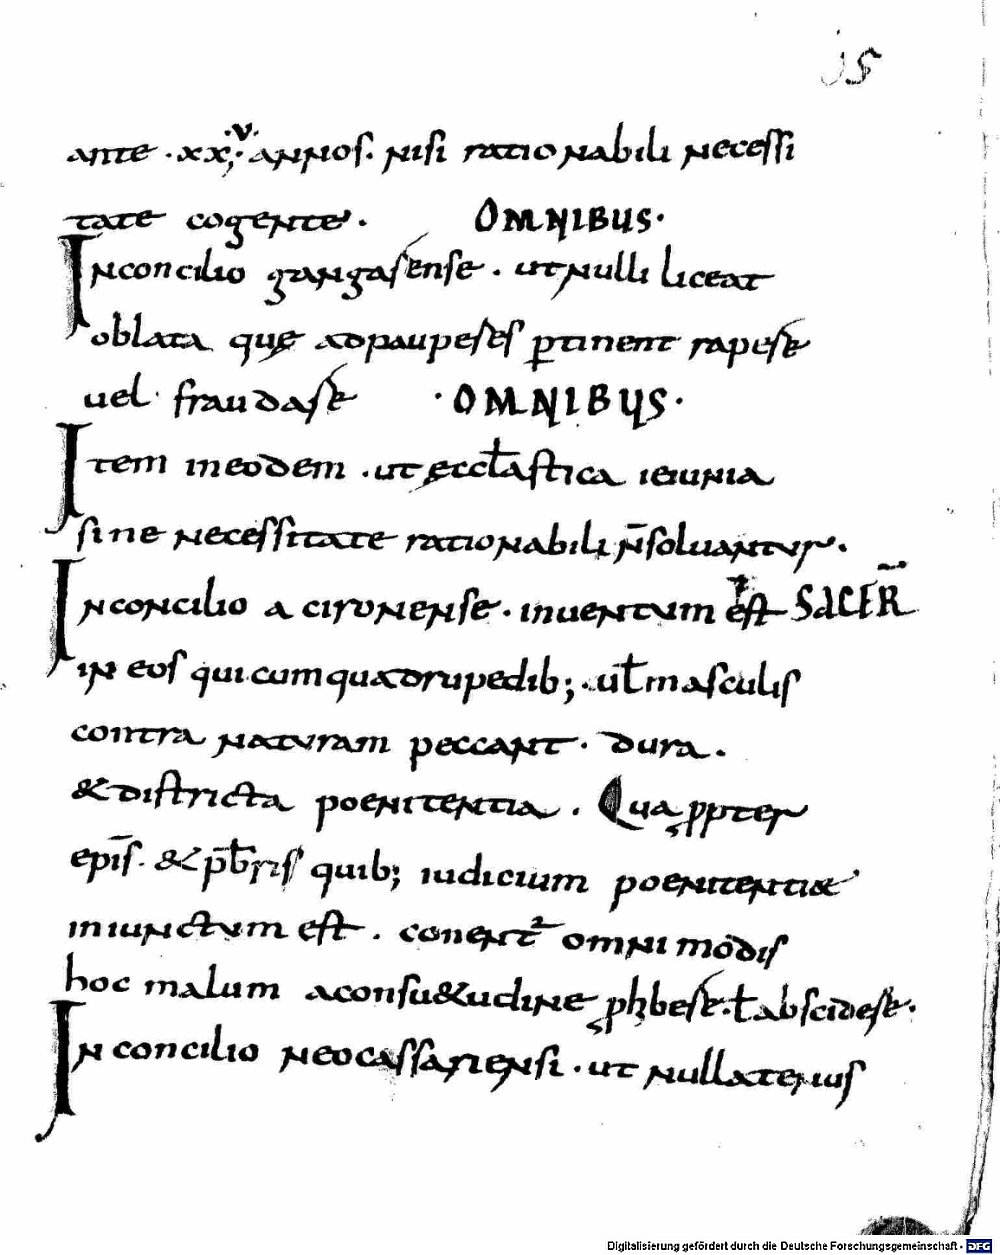 15
ante · xx v · annos · nisi rationabili necessi
tate cogente · OMNIBUS ·
In concilio gangarense · ut nulli liceat
oblata que ad pauperes ꝑtinent rapere
uel fraudare · OMNIBUS ·
Item in eodem · ut ecclastica ieiunia
sine necessitate rationabili n̄ soluantur ·
In concilio acironense · inuentum est SACER̄
in eos qui cum quadrupedib; · ul masculis
contra naturam peccant · dura ·
& districta poenitentia · Qua ꝓpter
epīs · & pb̄ris quib; iudicium poenitentiae
iniunctum est · conent omnimodis
hoc malum a consu&udine ꝓhbere · ł abscidere ·
In concilio neocassariensi · ut nullaterius
Digitalisierung gefördert durch die Deutsche Forschungsgemeinschaft - DFG